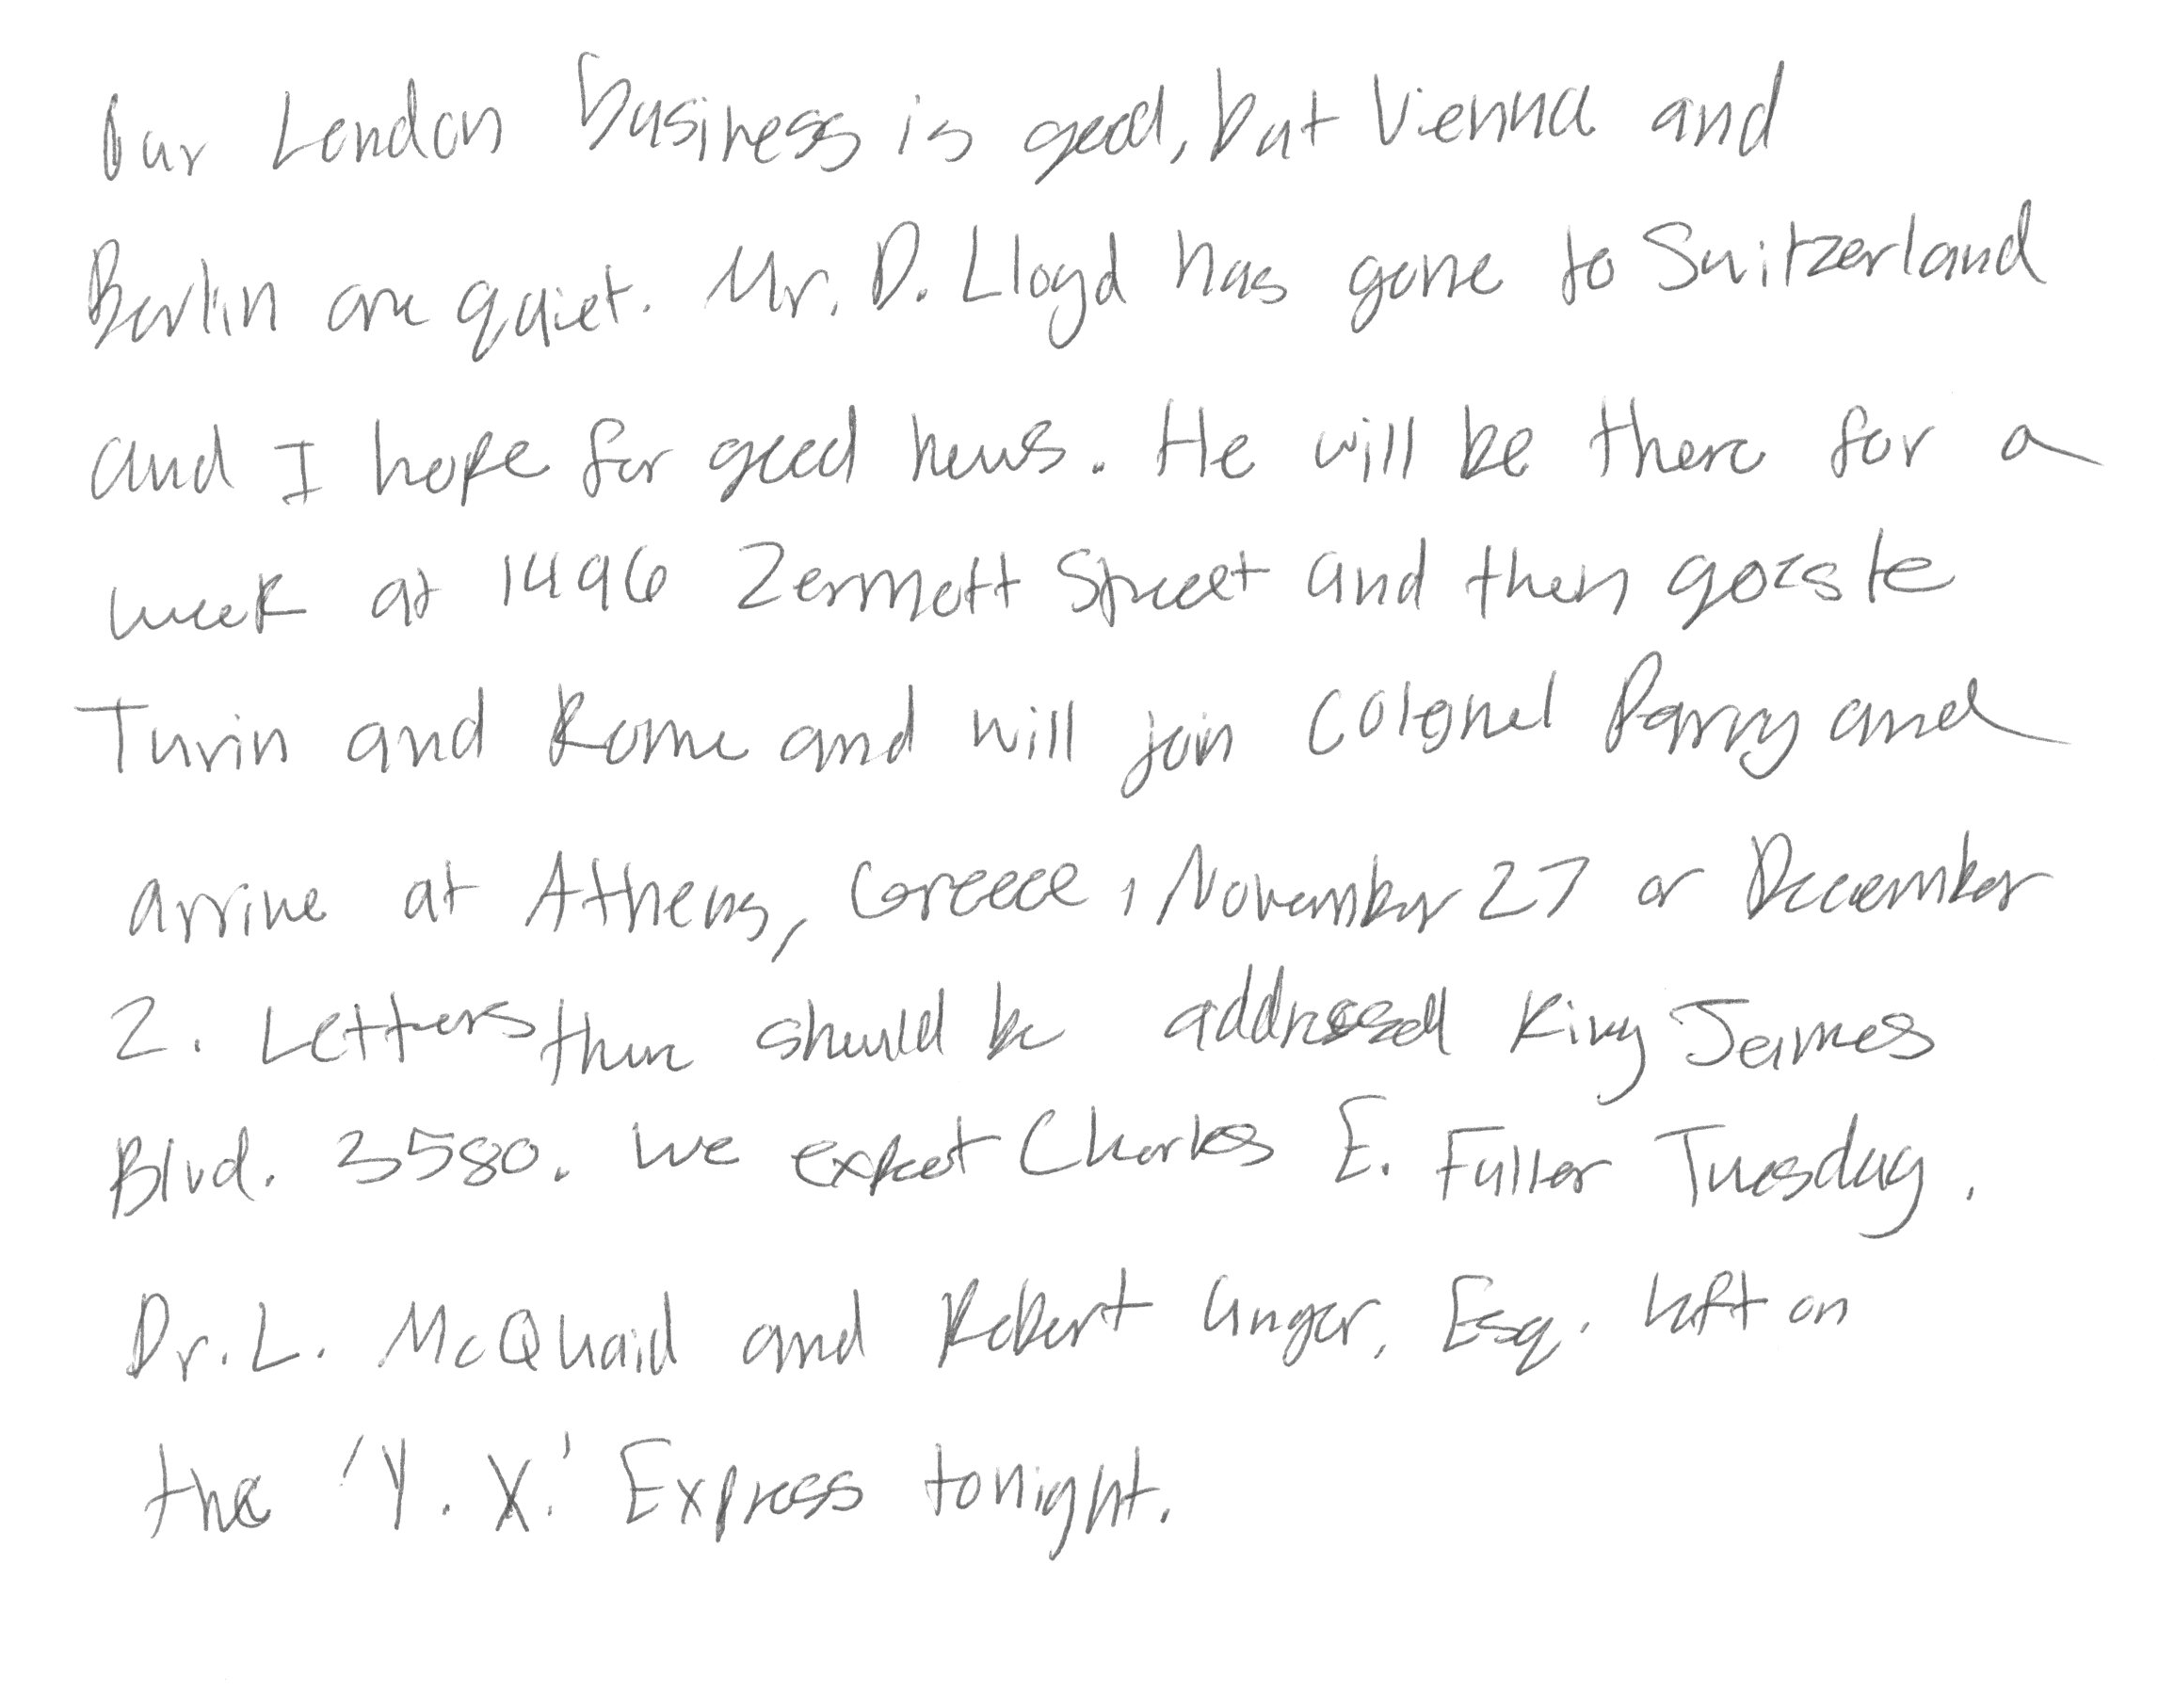 Our London business is good, but Vienna and
Berlin are quiet. Mr. D. Lloyd has gone to Switzerland
and I hope for good news. He will be there for a
week at 1496 Zermott Street and then goes to
Turin and Rome and will join Colonel Parry and
arrive at Athens, Greece, November 27 or December
2. Letters there should be addressed King James
Blvd. 3580. We expect Charles E. Fuller Tuesday.
Dr. L. McQuaid and Robert Unger, Esq. left on
the 'Y. X.' Express tonight.